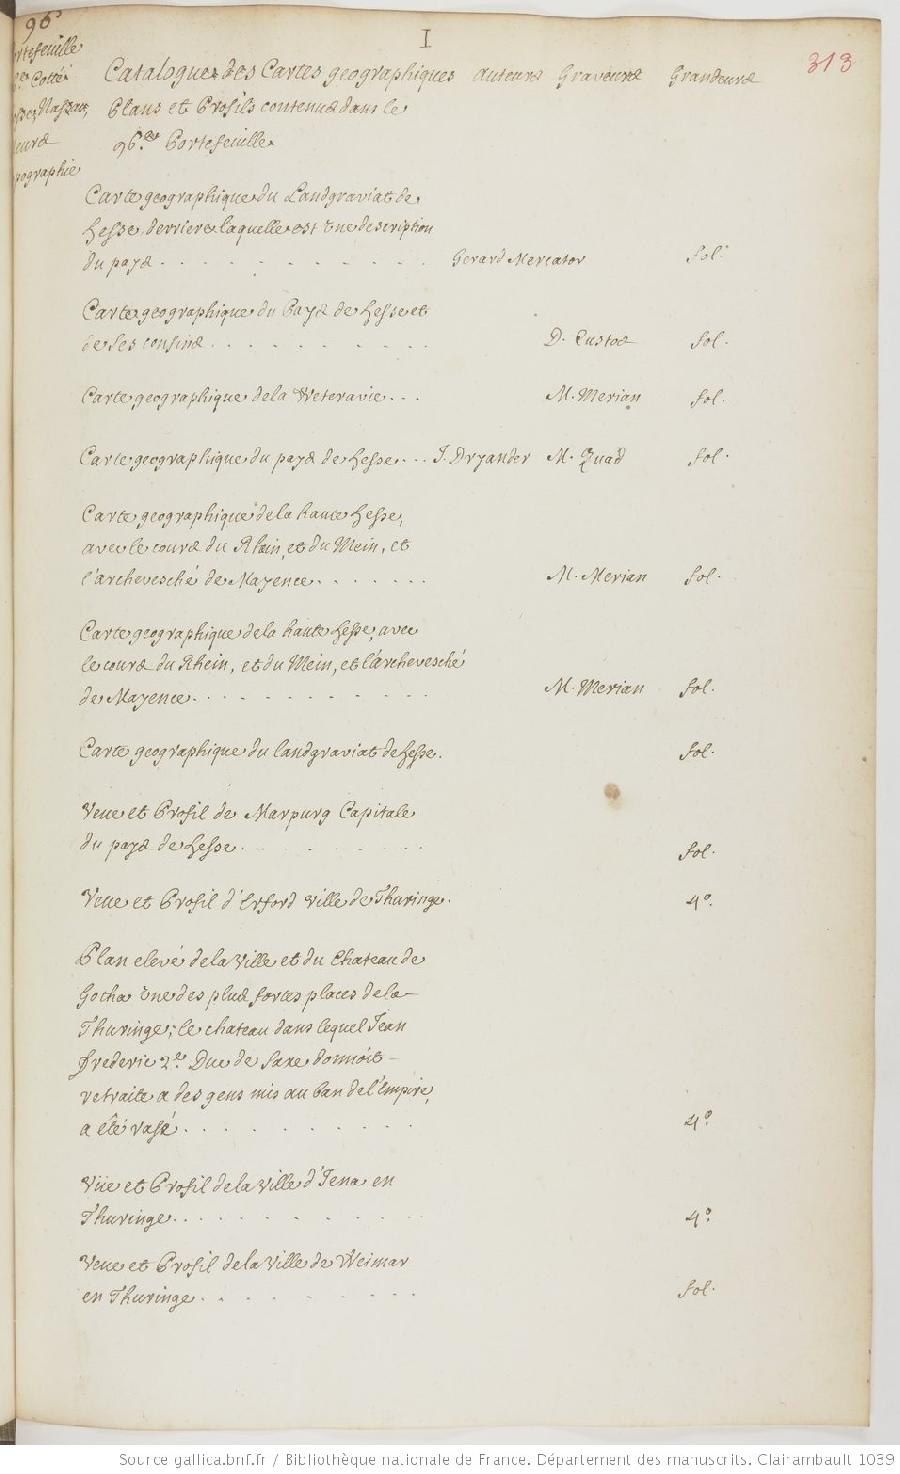 96
I
313
rtefeuille
Cotté
Nassau,
eurs
pographie
Catalogue des Cartes geographiques auteurs Graveurs Grandeurs
Plans et Profils contenus dans le
96.e Portefeuille
Carte geographique du Landgraviat de
hesse, derriere laquelle est une description
du pays . . . . . . . . . Gerard Mercator fol.
Carte geographique du Pays de hesse et
de ses confins . . . . . . . . D. Custos fol.
Carte geographique de la Weteravie . . . M. Merian fol.
Carte geographique du pays de hesse . . . J. Dryander M. Quad fol.
Carte geographique de la haute hesse,
avec le cours du Rhein, et du Mein, et
l'archevesché de Mayence . . . . . . M. Merian fol.
Carte geographique de la haute hesse, avec
le cours du Rhein, et du Mein, et l'archevesché
de Mayence . . . . . . . . . M. Merian fol.
Carte geographique du landgraviat de hesse. fol.
Veue et Profil de Marpurg Capitale
du pays de hesse . . . . . . fol.
Veue et Profil d'Erford ville de Thuringe. 4º.
Plan elevé de la Ville et du Chateau de
Gotha une des plus fortes places de la
Thuringe; le chateau dans lequel Jean
frederic 2.e Duc de saxe donnoit
retraite a des gens mis au ban de l'Empire,
a êté rasé . . . . . . . . . 4º.
Vüe et Profil de la Ville d'Jena en
Thuringe . . . . . . . . . 4º.
Veue et Profil de la Ville de Weimar
en Thuringe . . . . . . . . fol.
Source gallica.bnf.fr / Bibliothèque nationale de France. Département des manuscrits. Clairambault 1039